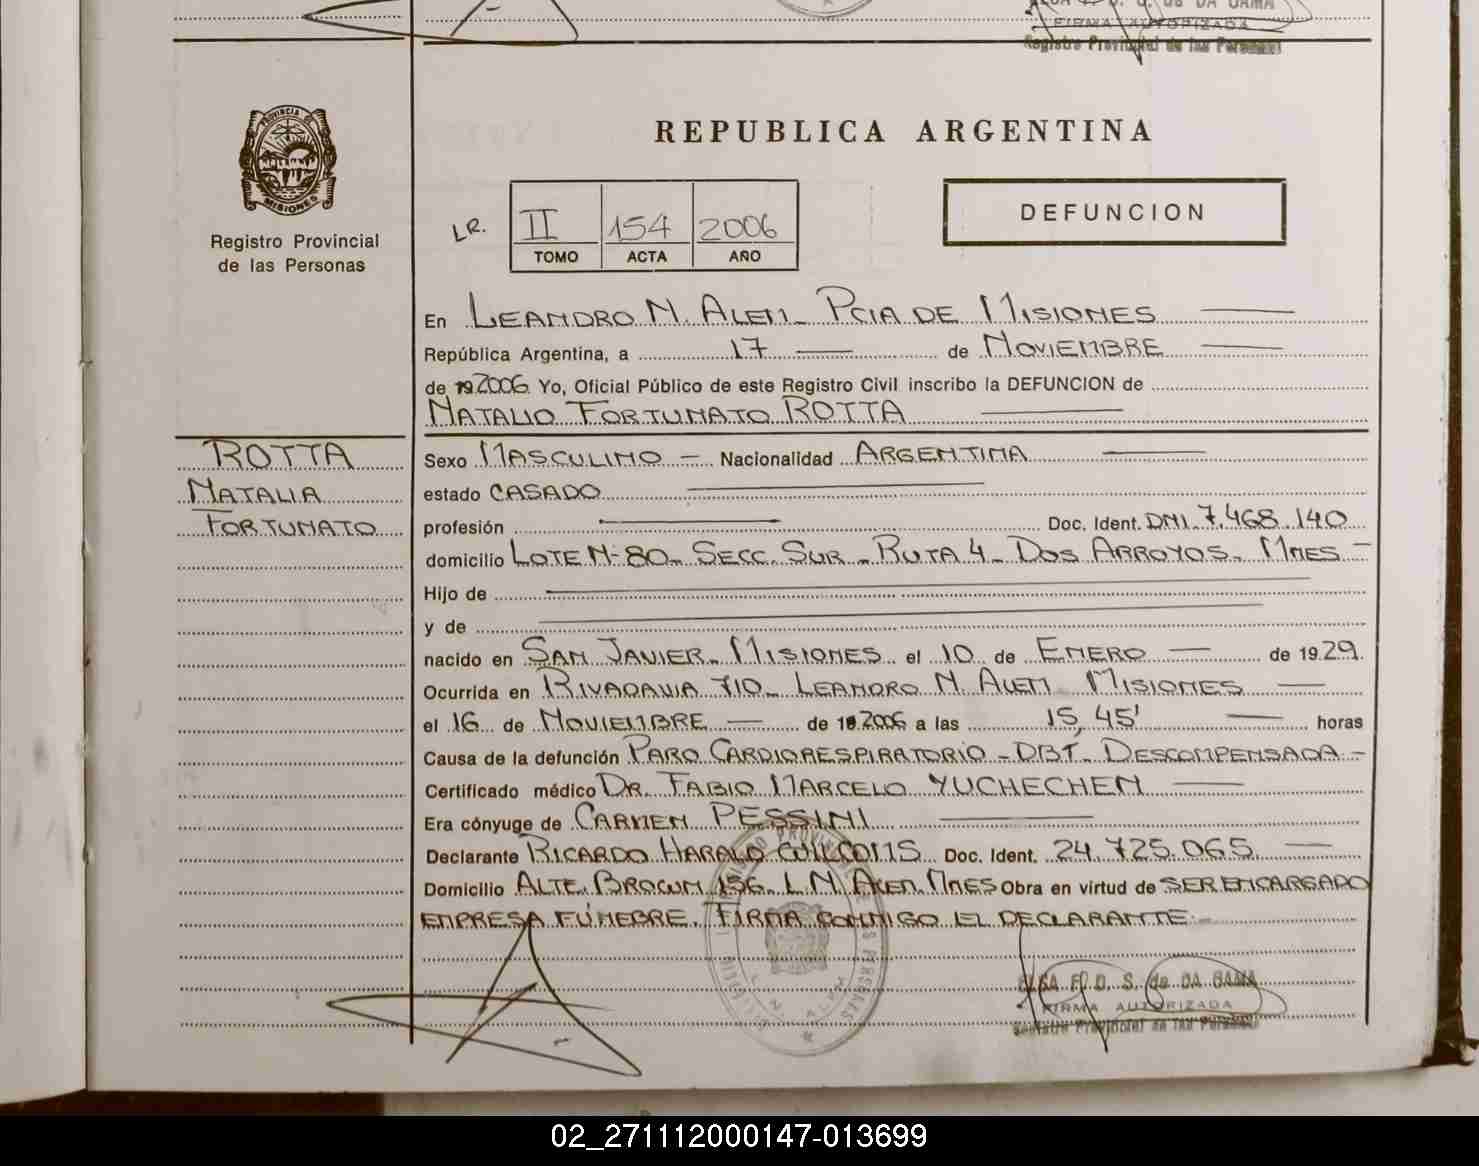 FIRMA AUTORIZADA
Registro Provincial de las Personas
PROVINCIA DE
MISIONES
Registro Provincial
de las Personas
REPUBLICA ARGENTINA
LR. II 154 2006
TOMO ACTA AÑO
DEFUNCION
En LEANDRO N. ALEM - PCIA DE MISIONES
República Argentina, a 17 de NOVIEMBRE
de 19 2006 Yo, Oficial Público de este Registro Civil inscribo la DEFUNCION de
NATALIO FORTUNATO ROTTA
ROTTA
NATALIA
FORTUNATO
Sexo MASCULINO - Nacionalidad ARGENTINA
estado CASADO
profesión Doc. Ident. DNI 7.468.140
domicilio LOTE Nº 80 - SECC. SUR - RUTA 4 - DOS ARROYOS - MNES -
Hijo de
y de
nacido en SAN JAVIER - MISIONES el 10 de ENERO de 1929
Ocurrida en RIVADAVIA 710 - LEANDRO N. ALEM MISIONES
el 16 de NOVIEMBRE de 19 2006 a las 15,45' horas
Causa de la defunción PARO CARDIORESPIRATORIO - DBT. DESCOMPENSADA -
Certificado médico DR. FABIO MARCELO YUCHECHEN
Era cónyuge de CARMEN PESSINI
Declarante RICARDO HARALD Doc. Ident. 24.725.065
Domicilio ALTE. BROWN 156 - L.N. ALEM. MNES Obra en virtud de SER ENCARGADO
EMPRESA FÚNEBRE. FIRMA CONMIGO EL DECLARANTE.-
ELSA F. D. S. de DA GAMA
FIRMA AUTORIZADA
Registro Provincial de las Personas
02_271112000147-013699